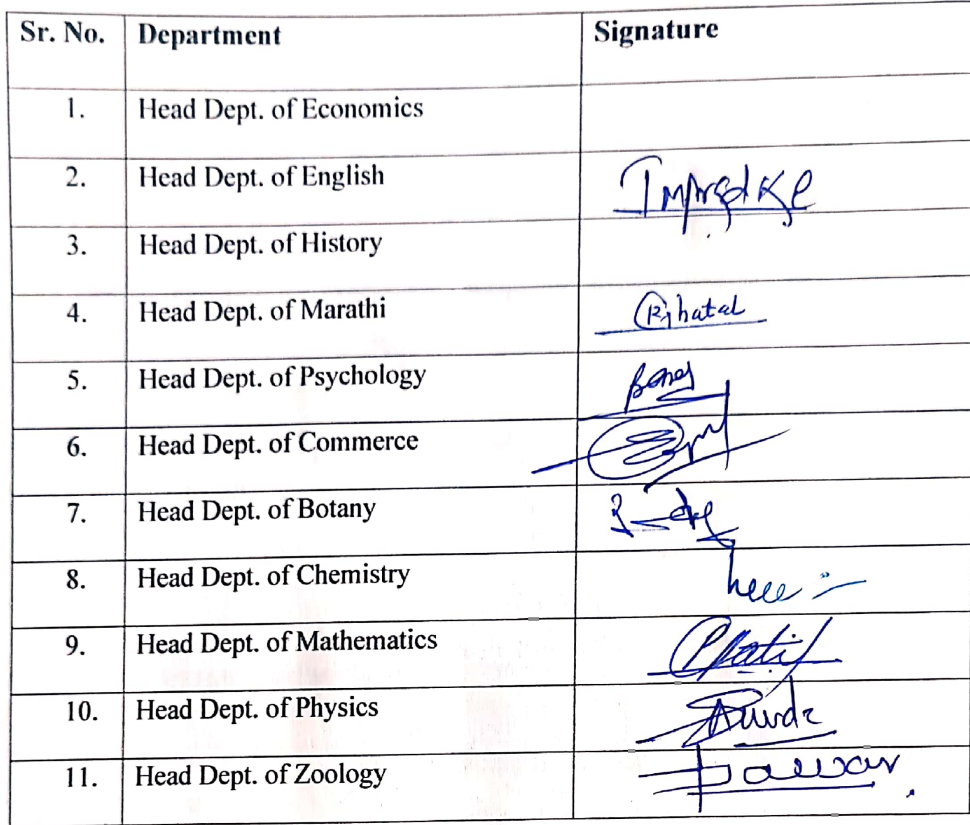 Sr. No. Department Signature
1. Head Dept. of Economics
2. Head Dept. of English
3. Head Dept. of History
4. Head Dept. of Marathi
5. Head Dept. of Psychology
6. Head Dept. of Commerce
7. Head Dept. of Botany
8. Head Dept. of Chemistry
9. Head Dept. of Mathematics
10. Head Dept. of Physics
11. Head Dept. of Zoology